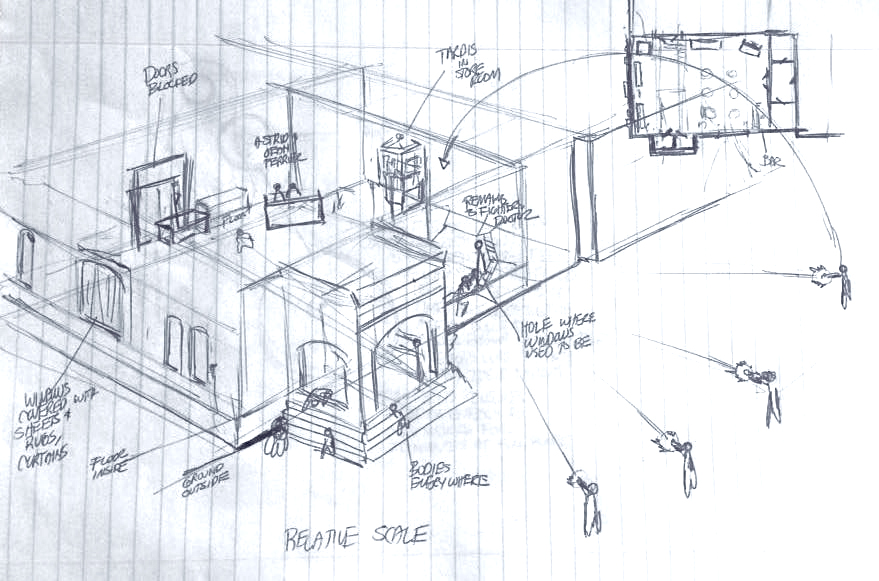 DOORS
BLOCKED
TARDIS
IN
STORE
ROOM
ASTRID &
BAR
DOCTOR
HOLE WHERE
WINDOWS
USED TO BE
WINDOWS
COVERED WITH
SHEETS &
RUGS,
CURTAINS
FLOOR
INSIDE
GROUND
OUTSIDE
BODIES
EVERYWHERE
RELATIVE SCALE